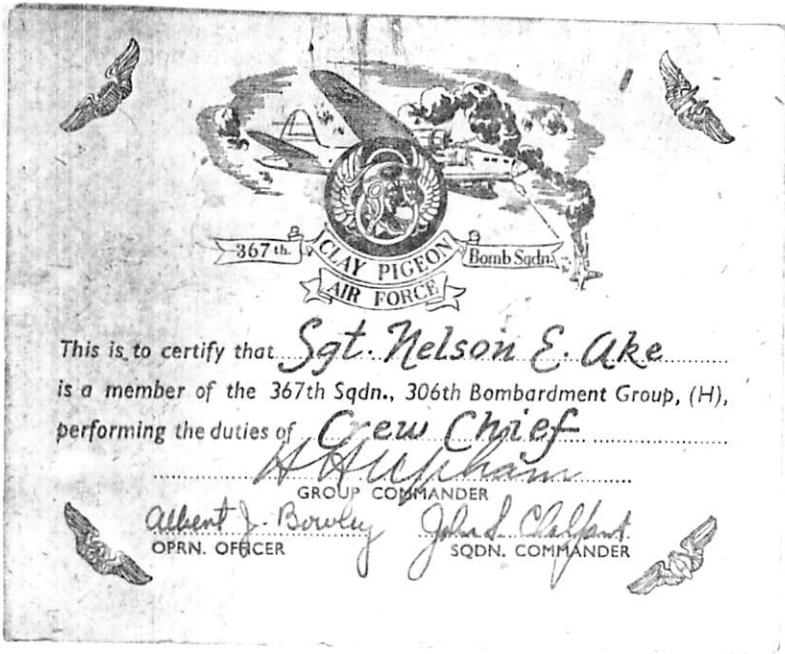 367th.
CLAY PIGEON
Bomb Sqdn.
AIR FORCE
This is to certify that Sgt. Nelson E. Ake
is a member of the 367th Sqdn., 306th Bombardment Group, (H),
performing the duties of Crew Chief
GROUP COMMANDER
Albert J. Bowley John S. Chalfant
OPRN. OFFICER SQDN. COMMANDER